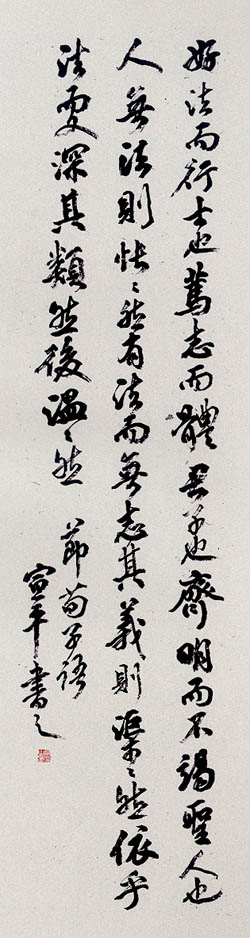 好法而行士也篤志而體君子也齊明而不竭聖人也
人無法則悵〻然有法而無志其義則渠〻然依乎
法而又深其類然後溫〻然
節荀子語
宣平書之